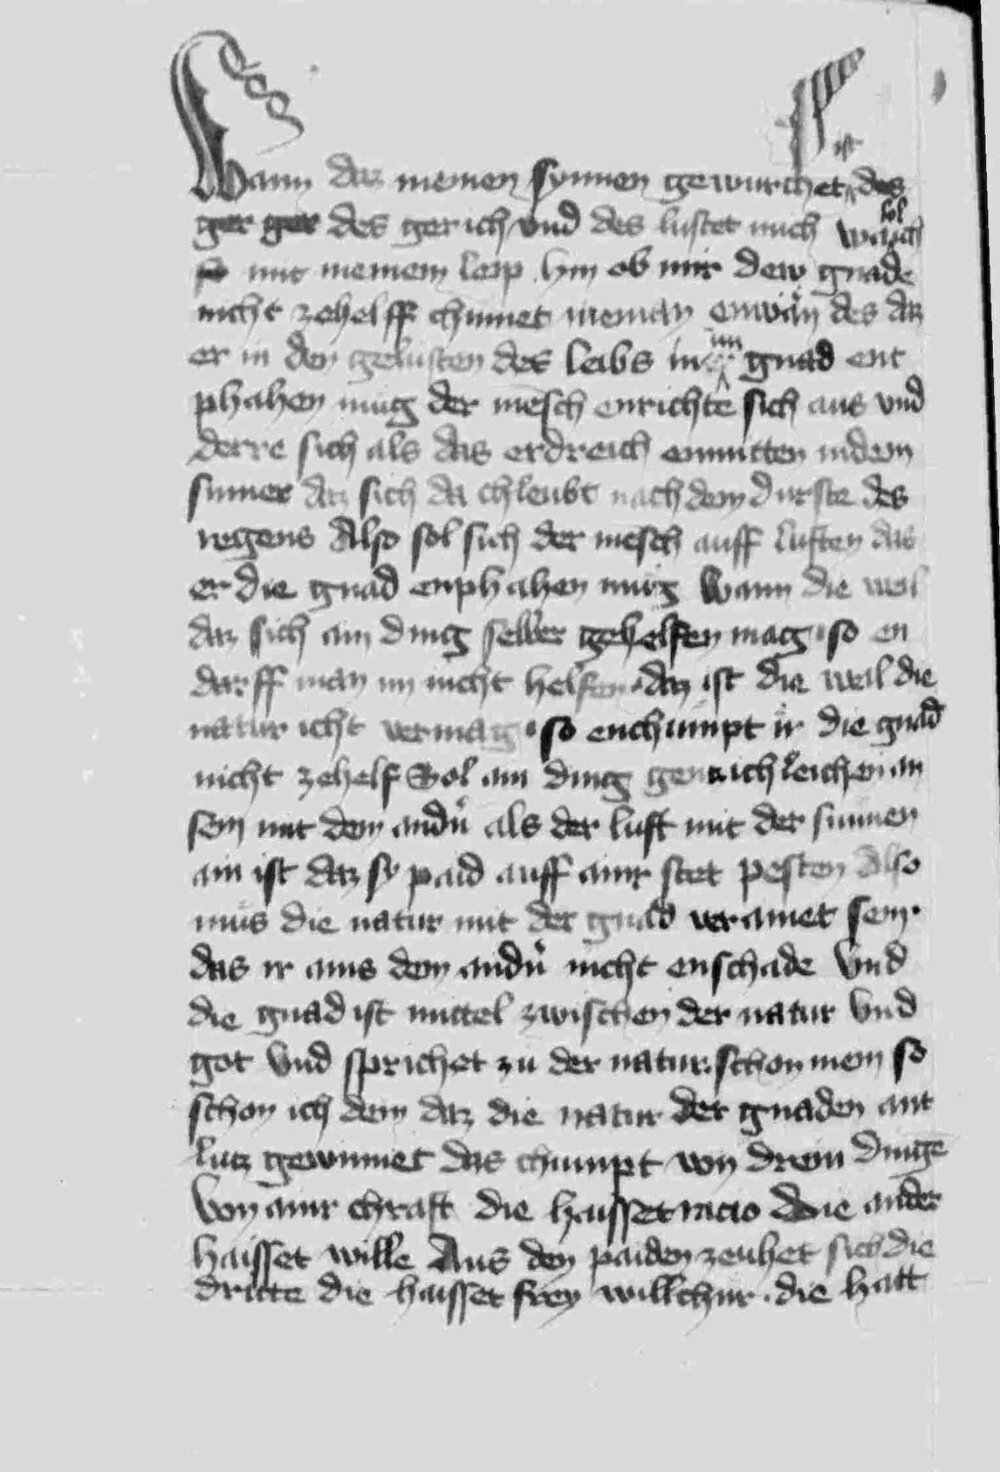 Wann daz meinen synnen gewurchet ist des
ger ger des ger ich vnd des lustet mich wo ich sol
mit meinem leip hin ob mir dew gnade
nicht zehelff chumet nieman enwän des daz
er in den gelusten des leibs im gnad ent
phahen mug der mesch enrichte sich aus vnd
derre sich als das erdreich enmitten indem
sumer daz sich da chleubt nach dem durste des
regens Also sol sich der mesch auff luften das
er die gnad enphahen müg Wann die weil
daz sich ain ding selber gehelfen mag so en
darff man im nicht helfen daz ist die weil die
natur icht vermag so enchumpt ir die gnad
nicht zehelf Sol ain ding leichen an
sein mit dem andn als der luft mit der sunnen
ain ist daz sy paid auff ainr stet pesten Also
mus die natur mit der gnad verainet sein
das ir ains dem andn nicht enschade Vnd
die gnad ist mittel zwischen der natur Vnd
got Vnd sprichet zu der natur schon mein so
schon ich dein daz die natur der gnaden ant
lutz gewinnet das chumpt von drein dinge
Von ainr chraft die haisset racio Die ander
haisset wille Aus den paiden zeuhet sich die
dritte die haisset frey willchur die hatt